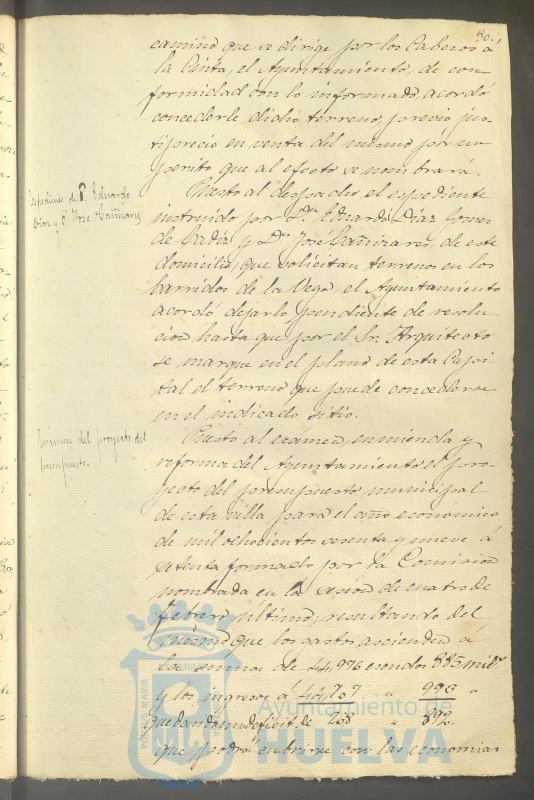 80.
camino que se dirige por los Cabezos á
la Cinta, el Ayuntamiento, de con-
formidad con lo informado, acordó
concederle dicho terreno, previo jus-
tiprecio en venta del mismo por un
perito que al efecto se nombrará.
Expediente de D. Eduardo
Diaz y D. Jose Cañizares
Puesto al despacho el espediente
instruido por Dn. Eduardo Diaz Gomez
de Cadiz y Dn. José Cañizares, de este
domicilio, que solicitan terrenos en los
barridos de la Vega, el Ayuntamiento
acordó dejarlo pendiente de resolu-
cion hasta que por el Sr. Arquitecto
se marque en el plano de esta Capi-
tal el terreno que puede concederse
en el indicado sitio.
Examen del proyecto del
presupuesto.
Puesto al examen, enmienda y
reforma del Ayuntamiento el pro-
yecto del presupuesto municipal
de esta villa para el año económico
de mil ochocientos sesenta y nueve á
setenta formado por la Comision
nombrada en la sesion de cuatro de
Febrero último, resultando del
mismo que los gastos ascienden á
la suma de 44,976 escudos 885 mils.
y los ingresos á 44,707 " 993 "
quedando un deficit de 268 " 892
que podrá cubrirse con las economias
PORTUS MARIS
Ayuntamiento de
HUELVA